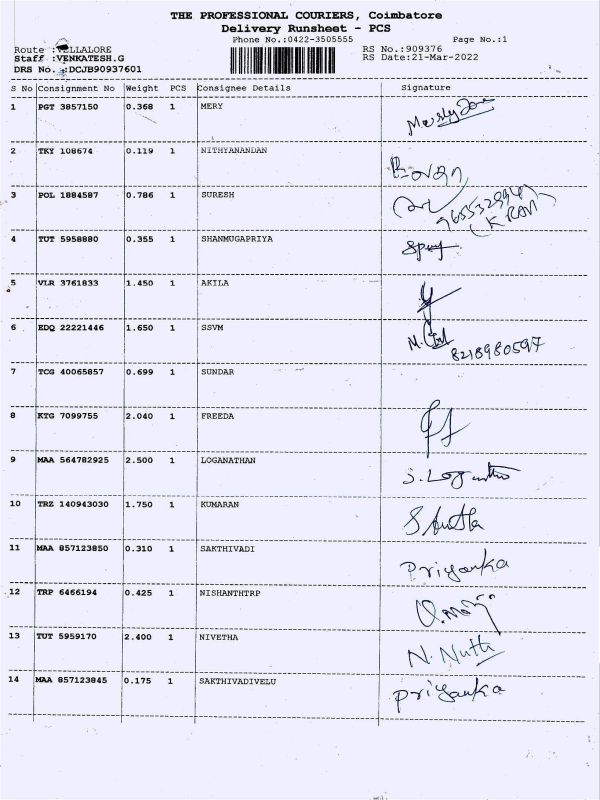 THE PROFESSIONAL COURIERS, Coimbatore
Delivery Runsheet - PCS
Phone No.:0422-3505555 Page No.:1
Route :VELLALORE RS No.:909376
Staff :VENKATESH.G RS Date:21-Mar-2022
DRS No. :DCJB90937601
S No Consignment No Weight PCS Consignee Details Signature
1 PGT 3857150 0.368 1 MERY
2 TKY 108674 0.119 1 NITHYANANDAN
3 POL 1884587 0.786 1 SURESH
4 TUT 5958880 0.355 1 SHANMUGAPRIYA
5 VLR 3761833 1.450 1 AKILA
6 EDQ 22221446 1.650 1 SSVM
8218980597
7 TCG 40065857 0.699 1 SUNDAR
8 KTG 7099755 2.040 1 FREEDA
9 MAA 564782925 2.500 1 LOGANATHAN
10 TRZ 140943030 1.750 1 KUMARAN
11 MAA 857123850 0.310 1 SAKTHIVADI Priyanka
12 TRP 6466194 0.425 1 NISHANTHTRP
13 TUT 5959170 2.400 1 NIVETHA
14 MAA 857123845 0.175 1 SAKTHIVADIVELU Priyanka